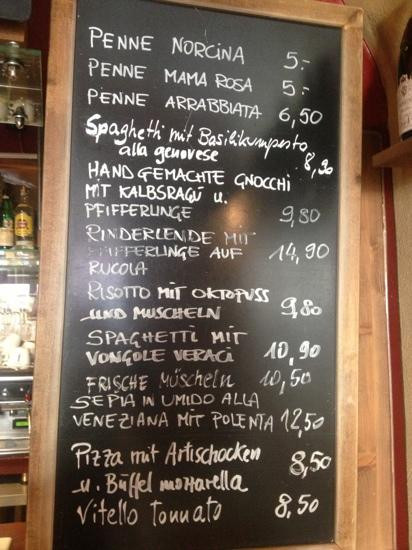 PENNE NORCINA 5.-
PENNE MAMA ROSA 5.-
PENNE ARRABBIATA 6,50
Spaghetti mit Basilikumpesto
alla genovese 8,90
HAND GEMACHTE GNOCCHI
MIT KALBSRAGÚ U.
PFIFFERLINGE 9,80
RINDERLENDE MIT
PFIFFERLINGE AUF 14,90
RUCOLA
RISOTTO MIT OKTOPUSS
UND MUSCHELN 9,80
SPAGHETTI MIT
VONGOLE VERACI 10,90
FRISCHE MÜSCHELN 10,50
SEPIA IN UMIDO ALLA
VENEZIANA MIT POLENTA 12,50
Pizza mit Artischocken 8,50
u. Büffel mozzarella
Vitello Tonnato 8,50